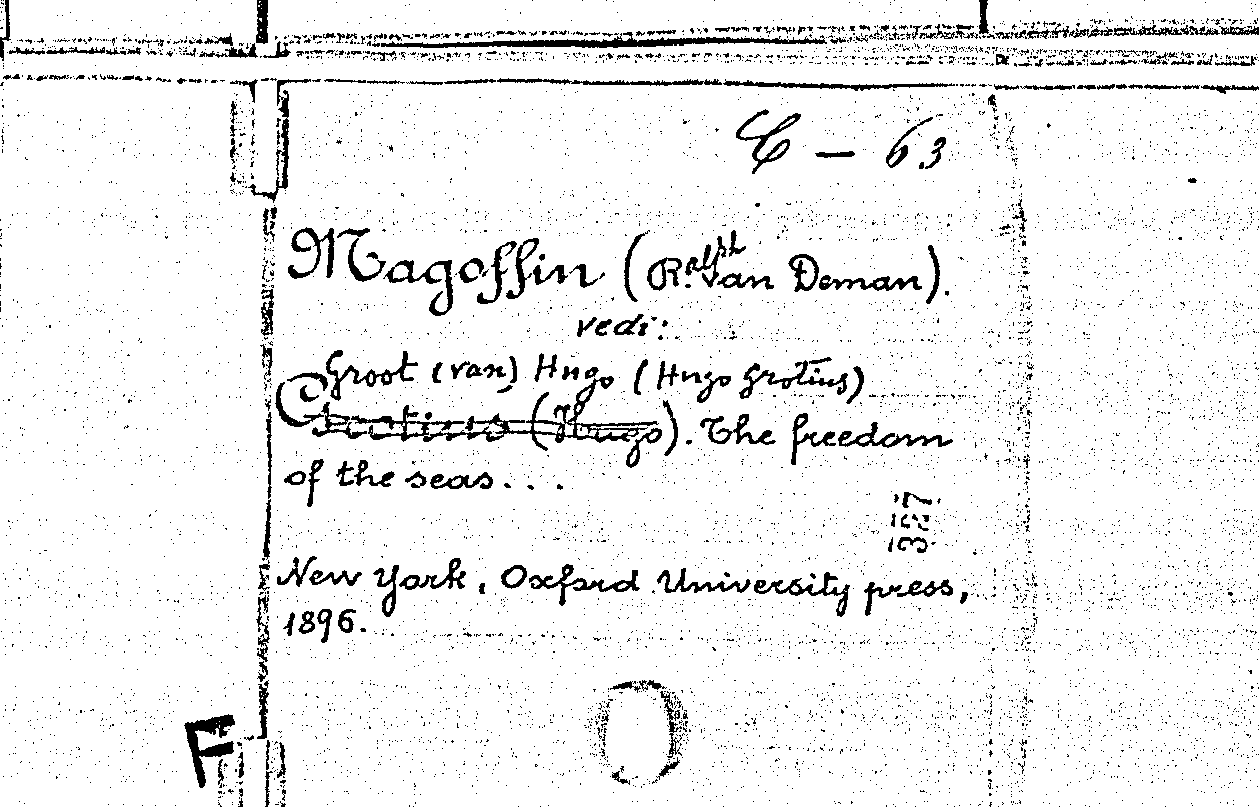 C - 63
Magoffin (R. Ralph Van Deman).
vedi:
Groot (van) Hugo (Hugo Grotius)
Grotius (Hugo). The freedom
of the seas...
327
New York, Oxford University press,
1896.
F